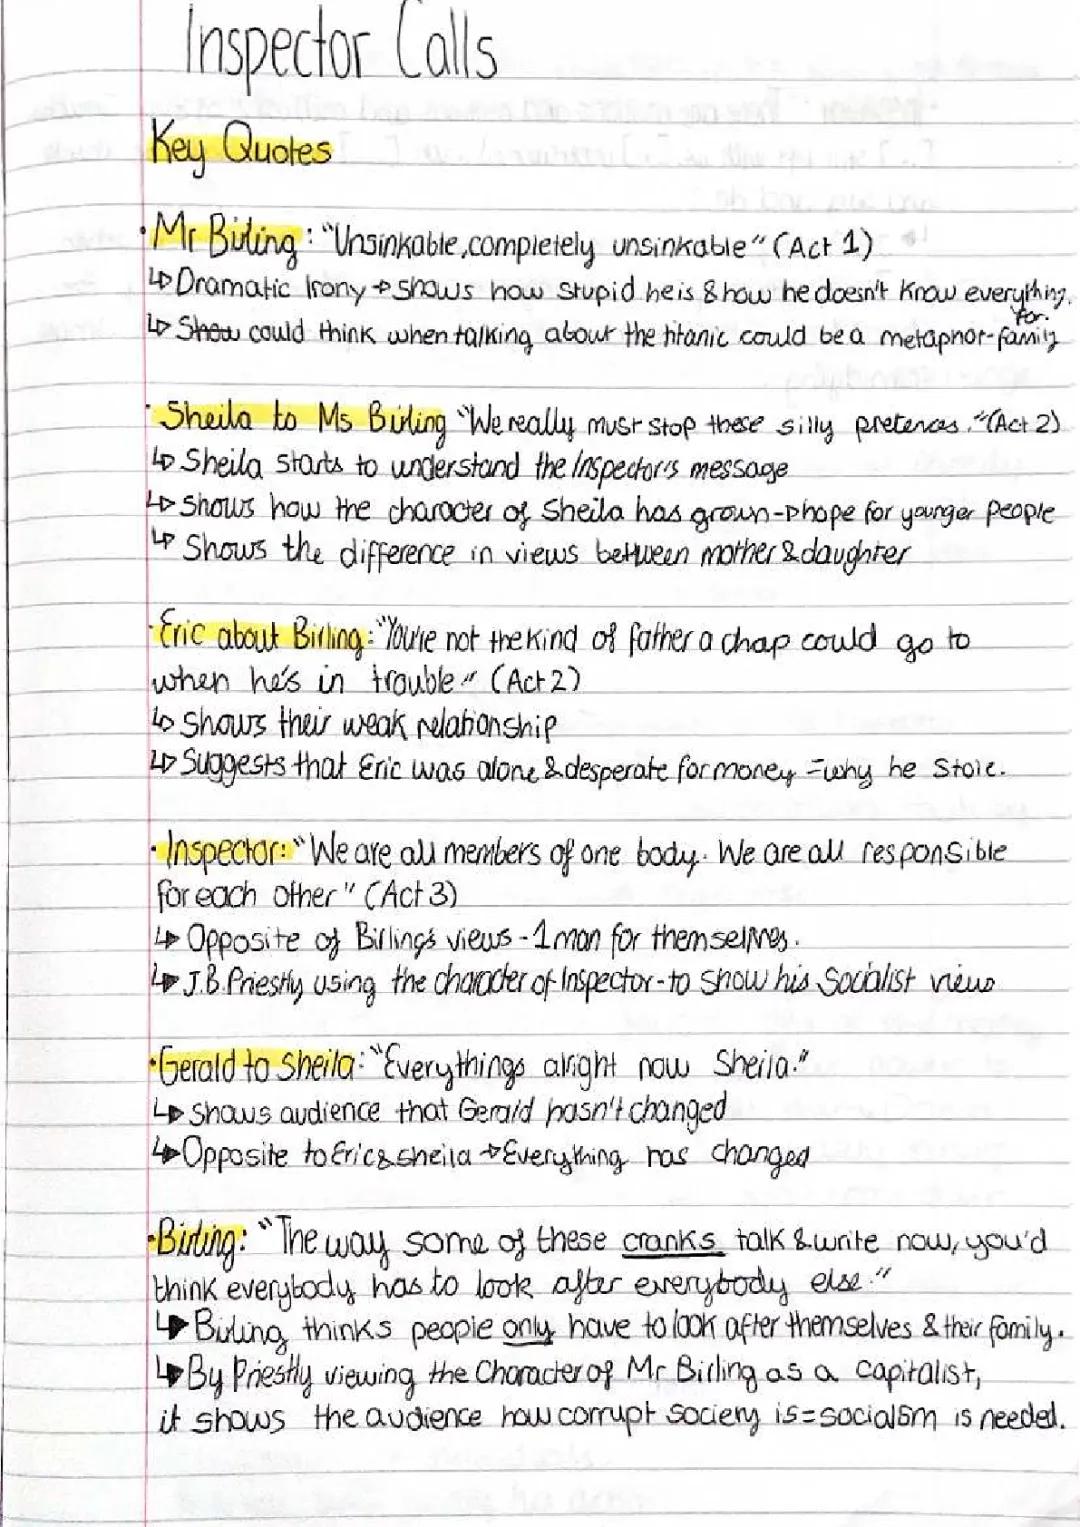 Inspector Calls
Key Quotes
• Mr Birling: "Unsinkable, completely unsinkable" (Act 1)
↳ Dramatic Irony → shows how stupid he is & how he doesn't know everything.
↳ Show could think when talking about the titanic could be a metaphor for. family
• Sheila to Ms Birling "We really must stop these silly pretences." (Act 2)
↳ Sheila starts to understand the Inspector's message
↳ Shows how the character of Sheila has grown → hope for younger people
↳ Shows the difference in views between mother & daughter
• Eric about Birling: "You're not the kind of father a chap could go to
when he's in trouble" (Act 2)
↳ Shows their weak relationship
↳ Suggests that Eric was alone & desperate for money = why he stole.
• Inspector: "We are all members of one body. We are all responsible
for each other" (Act 3)
↳ Opposite of Birling's views - 1 man for themselves.
↳ J.B. Priestly using the character of Inspector - to show his Socialist views
• Gerald to Sheila: "Everythings alright now Sheila."
↳ Shows audience that Gerald hasn't changed
↳ Opposite to Eric & sheila → Everything has changed
• Birling: "The way some of these cranks talk & write now, you'd
think everybody has to look after everybody else."
↳ Birling thinks people only have to look after themselves & their family.
↳ By Priestly viewing the Character of Mr Birling as a capitalist,
it shows the audience how corrupt society is = socialism is needed.